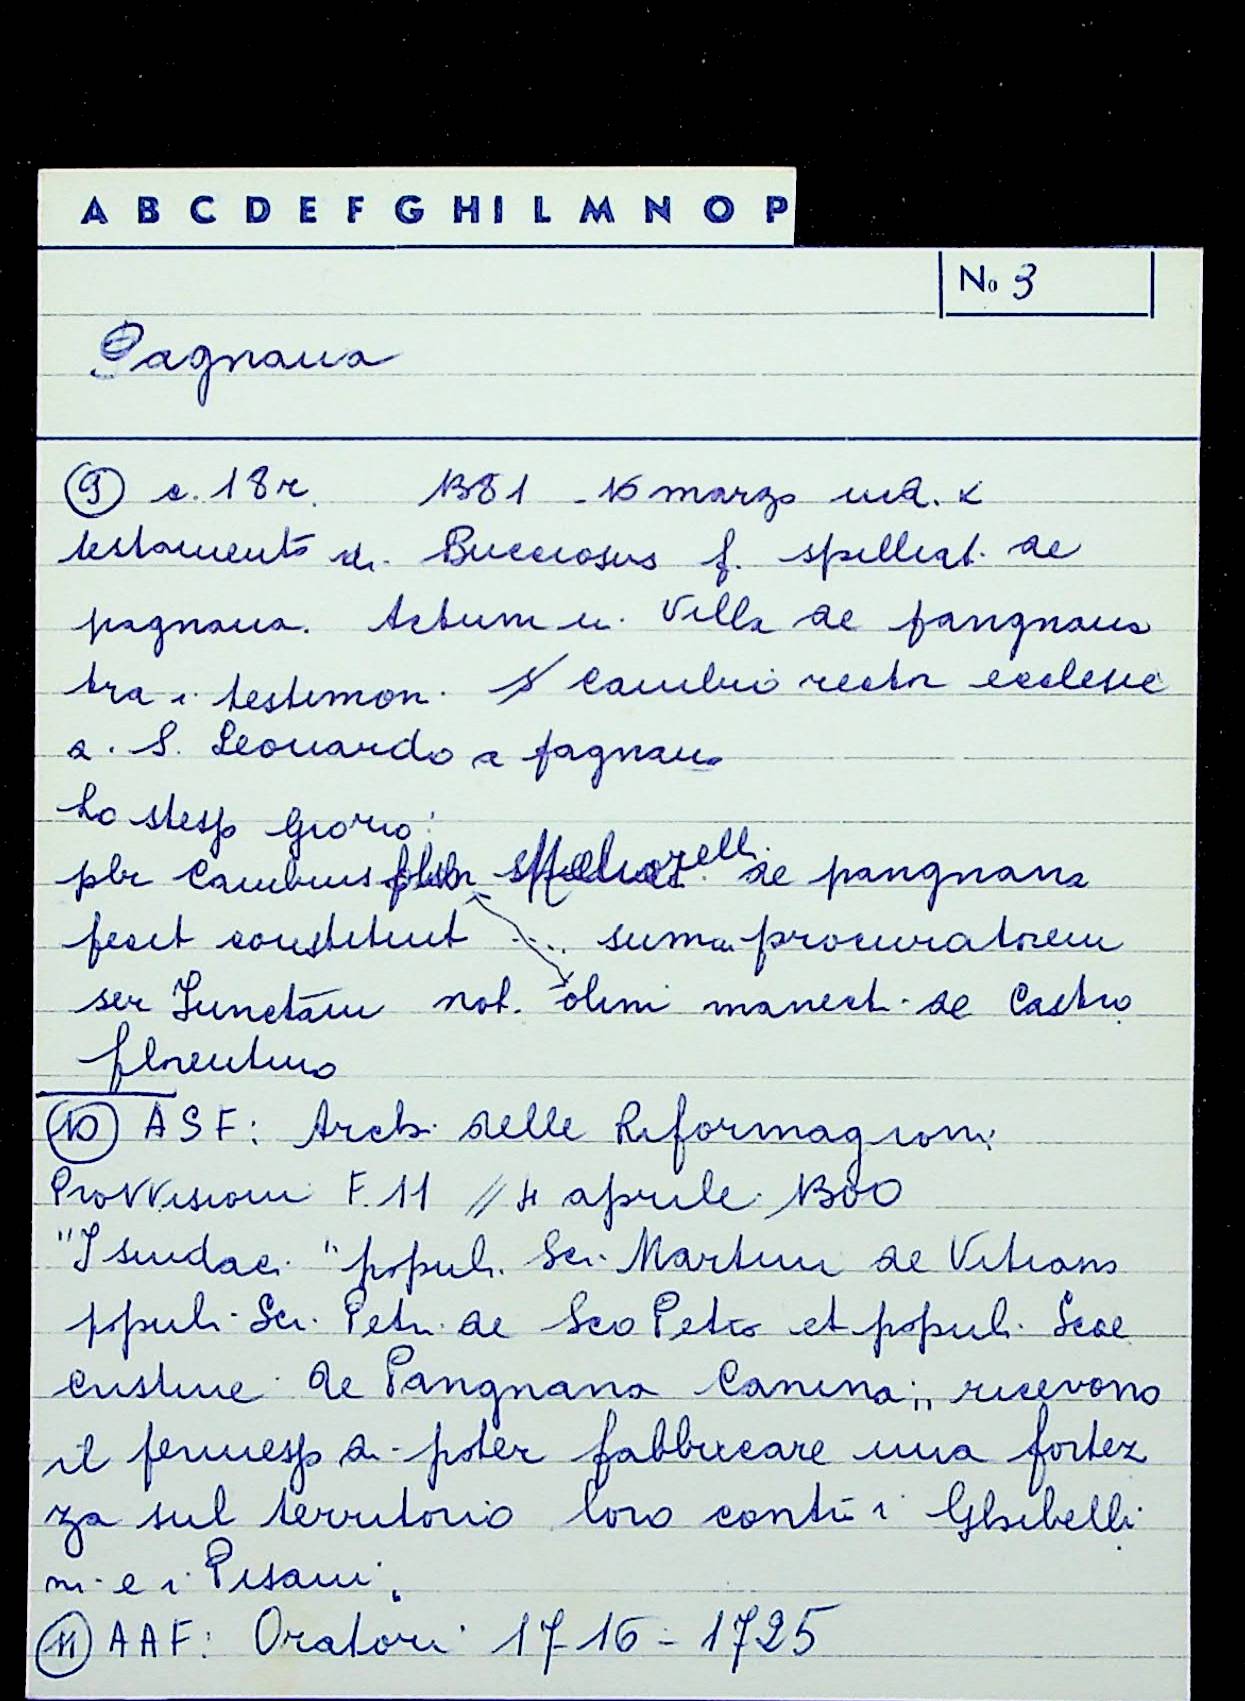 A B C D E F G H I L M N O P
No 3
Pagnana
9 c. 18 r. 16 marzo ind. X
testamento di Bucciosus f. de
pagnana. Actum in Villa de pangnana
tra i testimon. Cambio rector ecclesie
d. S. Leonardo a pagnana
Lo stesso giorno:
pbr Cambius de pangnana
fecit constituit ... suum procuratorem
ser Junctam not. olim manecti de Castro
florentino
10 ASF: Arch. delle Riformagioni
Provvisioni F. 11 // 4 aprile 1300
"I sindaci "populi Sci. Martini de Vitiana
populi Sci. Petri de Sco Petro et populi Scae
Cristine de Pangnana Canina" ricevono
il permesso di poter fabbricare una fortez
za sul territorio loro contro i Ghibelli
ni e i Pisani.
11 AAF: Oratori 1716-1725